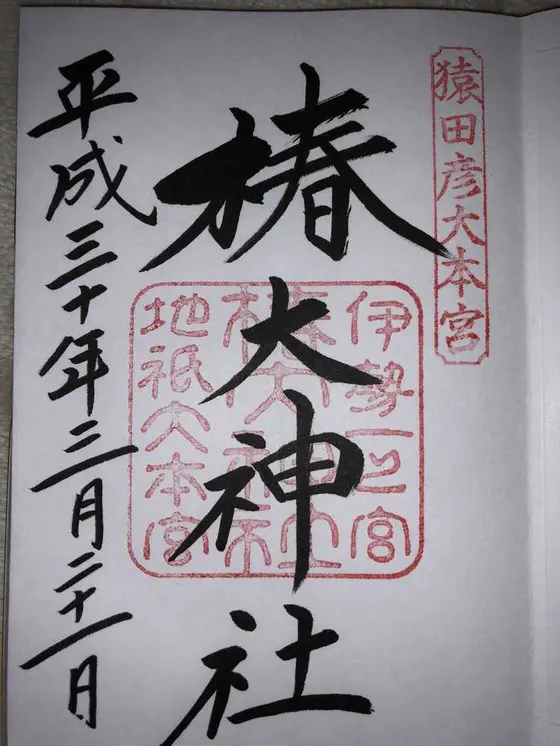 猿田彦大本宮
椿大神社
伊勢一之宮
椿大神社
地祇大本宮
平成三十年三月二十一日